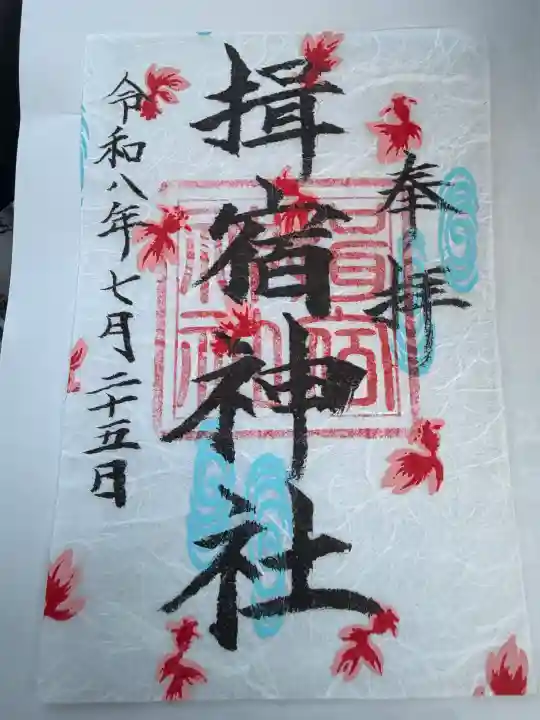 奉拝
揖宿神社
令和八年七月二十五日